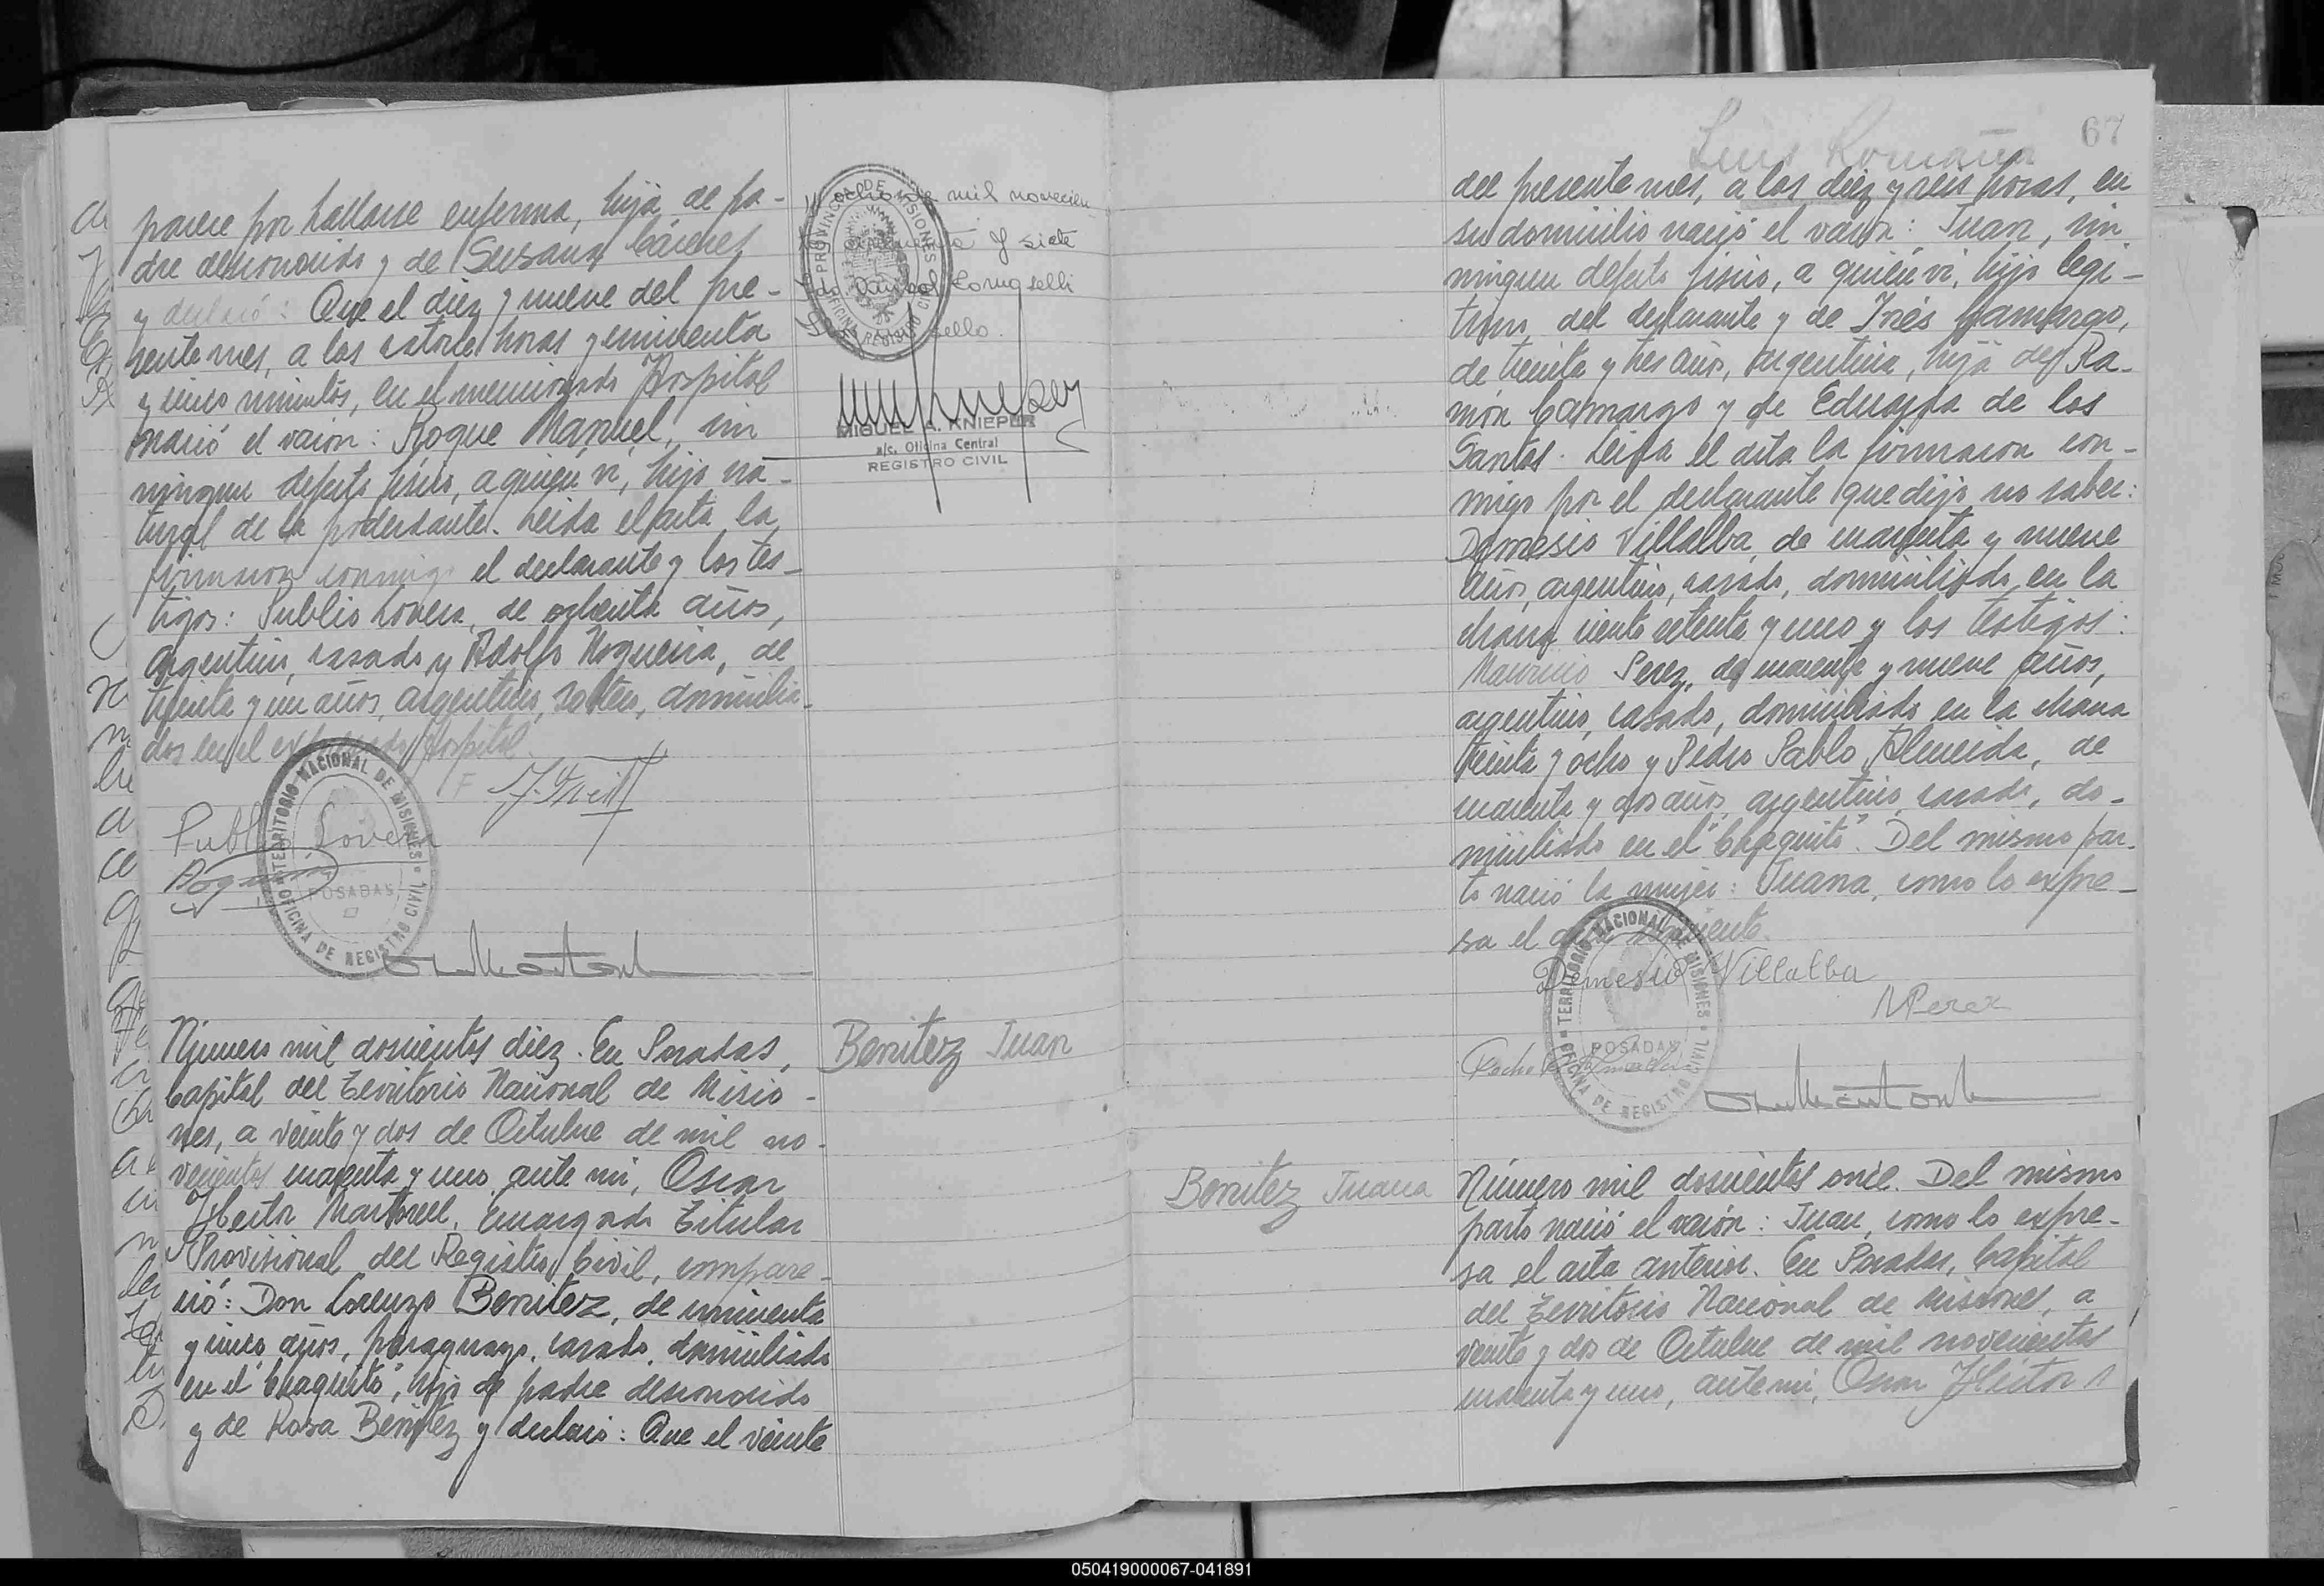 parece por hallarse enferma, hija de pa-
dre desconocido y de Susana Cáceres
y declaró: Que el diez y nueve del pre-
sente mes, a las catorce horas y cincuenta
y cinco minutos, en el mencionado Hospital
nació el varón: Roque Manuel, sin
ningun defecto físico, a quién vi, hijo na-
tural de la poderdante. Leida el acta, la
firmaron conmigo el declarante y los tes-
tigos: Publio Lovera, de ochenta años,
argentino, casado y Adolfo Nogueira, de
treinta y un años, argentino, soltero, domicilia-
dos en el expresado Hospital.
Publio Lovera
TERRITORIO NACIONAL DE MISIONES
POSADAS
OFICINA DE REGISTRO CIVIL
ocho de mil novecien
y siete
sello.
PROVINCIA DE MISIONES
OFICINA REGISTRO CIVIL
MIGUEL A. KNIEPER
a/c. Oficina Central
REGISTRO CIVIL
Benitez Juan
Número mil doscientos diez. En Posadas,
Capital del Territorio Nacional de Misio-
nes, a veinte y dos de Octubre de mil no-
vecientos cuarenta y uno, ante mi, Oscar
Héctor Martorell, Encargado Titular
Provisional del Registro Civil, compare-
ció: Don Lorenzo Benitez, de cincuenta
y cinco años, paraguayo, casado, domiciliado
en el "Chaquito", hijo de padre desconocido
y de Rosa Benitez y declaró: Que el veinte
67
Luis Romaña
del presente mes, a las diez y seis horas, en
su domicilio nació el varón: Juan, sin
ningun defecto físico, a quién vi, hijo legi-
timo del declarante y de Inés Camargo,
de treinta y tres años, argentina, hija de Ra-
món Camargo y de Eduarda de los
Santos. Leida el acta la firmaron con-
migo por el declarante que dijo no saber:
Domesio Villalba, de cuarenta y nueve
años, argentino, casado, domiciliado en la
chacra ciento setenta y uno y los testigos:
Mauricio Perez, de cuarenta y nueve años,
argentino, casado, domiciliado en la chacra
treinta y ocho y Pedro Pablo Almeida, de
cuarenta y dos años, argentino, casado, do-
miciliado en el "Chaquito". Del mismo par-
to nació la mujer: Juana, como lo expre-
sa el acta siguiente.
Domesio Villalba
M Perez
TERRITORIO NACIONAL DE MISIONES
POSADAS
OFICINA DE REGISTRO CIVIL
Benitez Juana
Número mil doscientos once. Del mismo
parto nació el varón: Juan, como lo expre-
sa el acta anterior. En Posadas, Capital
del Territorio Nacional de Misiones, a
veinte y dos de Octubre de mil novecientos
cuarenta y uno, ante mi, Oscar Héctor
050419000067-041891